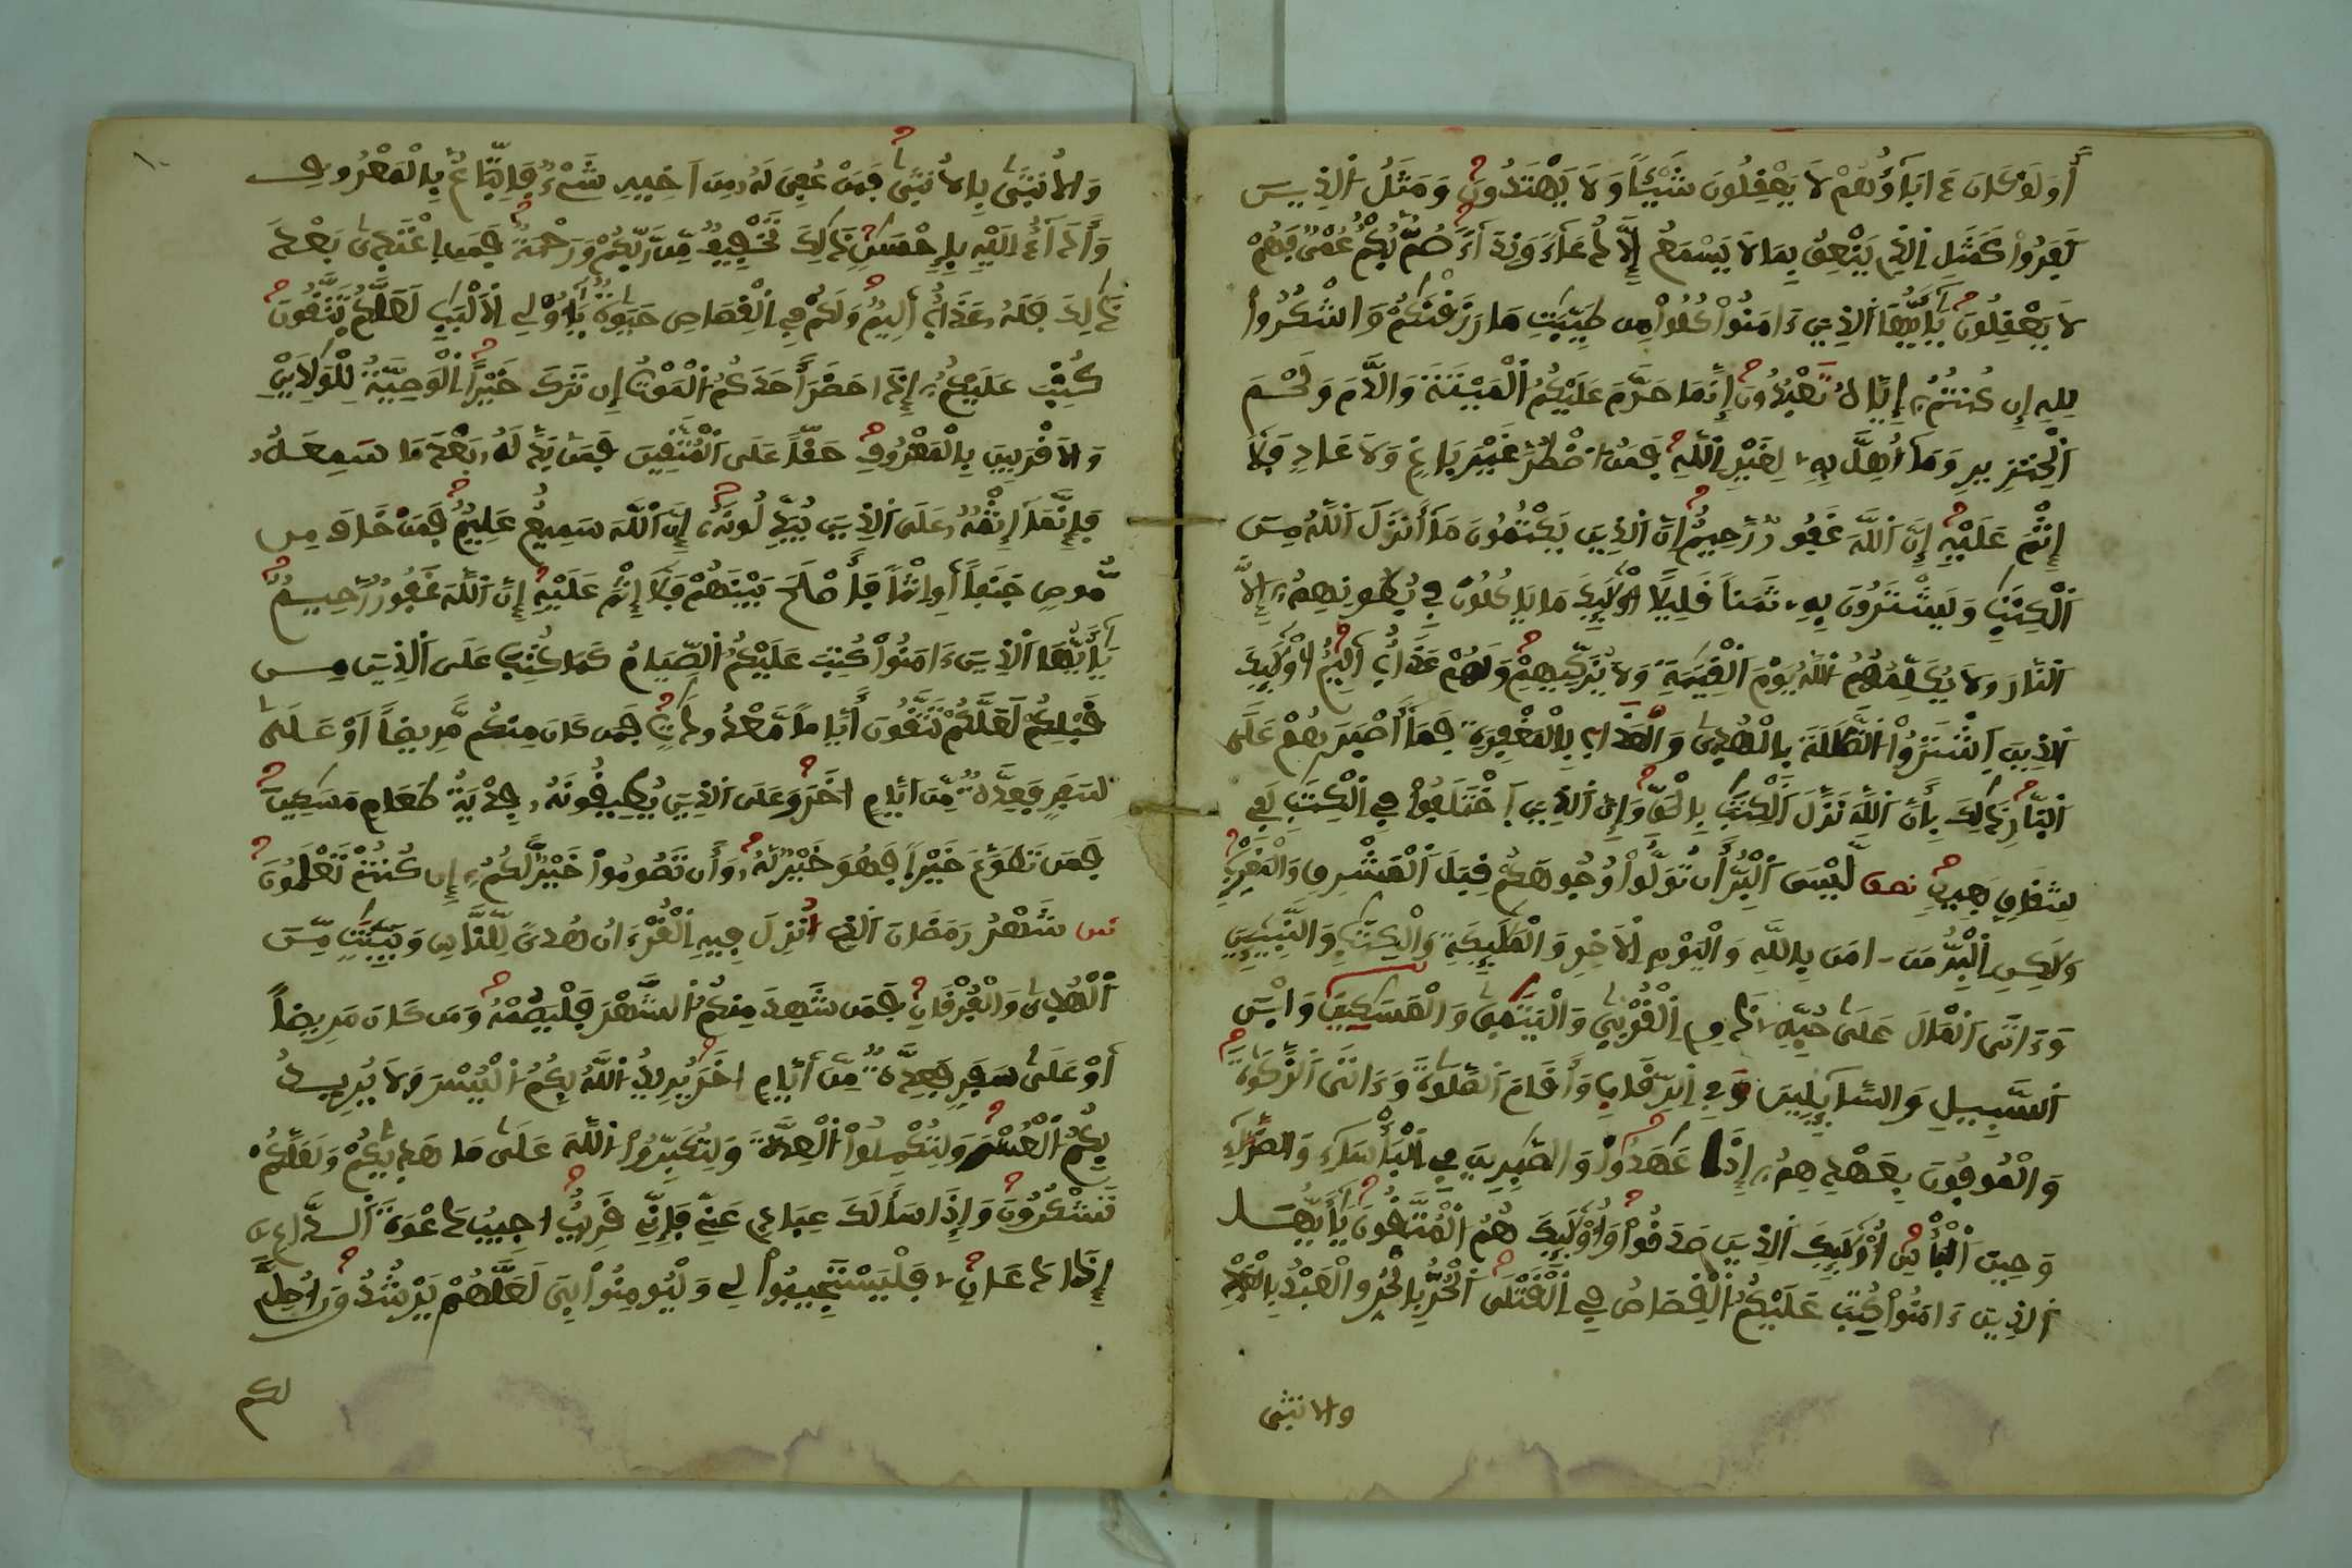 أَوَلَوْ كَانَ ءَابَاؤُهُمْ لَا يَعْقِلُونَ شَيْـًٔا وَلَا يَهْتَدُونَ وَمَثَلُ الذِينَ
كَفَرُوا كَمَثَلِ الذِي يَنْعِقُ بِمَا لَا يَسْمَعُ إِلَّا دُعَاءً وَنِدَاءً صُمٌّ بُكْمٌ عُمْيٌ فَهُمْ
لَا يَعْقِلُونَ يَٰأَيُّهَا الذِينَ ءَامَنُوا كُلُوا مِن طَيِّبَٰتِ مَا رَزَقْنَٰكُمْ وَاشْكُرُوا
لِلهِ إِن كُنتُمُ إِيَّاهُ تَعْبُدُونَ إِنَّمَا حَرَّمَ عَلَيْكُمُ الْمَيْتَةَ وَالدَّمَ وَلَحْمَ
الْخِنزِيرِ وَمَا أُهِلَّ بِهِ لِغَيْرِ اللَّهِ فَمَنُ اضْطُرَّ غَيْرَ بَاغٍ وَلَا عَادٍ فَلَا
إِثْمَ عَلَيْهِ إِنَّ اللَّهَ غَفُورٌ رَّحِيمٌ إِنَّ الذِينَ يَكْتُمُونَ مَا أَنزَلَ اللَّهُ مِنَ
الْكِتَٰبِ وَيَشْتَرُونَ بِهِ ثَمَناً قَلِيلًا أُوْلَٰئِكَ مَا يَاكُلُونَ فِي بُطُونِهِمُ إِلَّا
النَّارَ وَلَا يُكَلِّمُهُمُ اللَّهُ يَوْمَ الْقِيَٰمَةِ وَلَا يُزَكِّيهِمْ وَلَهُمْ عَذَابٌ أَلِيمٌ أُوْلَٰئِكَ
الذِينَ اشْتَرَوُا الضَّلَٰلَةَ بِالْهُدَىٰ وَالْعَذَابَ بِالْمَغْفِرَةِ فَمَا أَصْبَرَهُمْ عَلَى
النَّارِ ذَٰلِكَ بِأَنَّ اللَّهَ نَزَّلَ الْكِتَٰبَ بِالْحَقِّ وَإِنَّ الذِينَ اخْتَلَفُوا فِي الْكِتَٰبِ لَفِي
شِقَاقٍ بَعِيدٍ نصف لَّيْسَ الْبِرُّ أَن تُوَلُّوا وُجُوهَكُمْ قِبَلَ الْمَشْرِقِ وَالْمَغْرِبِ
وَلَٰكِنِ الْبِرُّ مَنَ امَنَ بِاللَّهِ وَالْيَوْمِ الْأَخِرِ وَالْمَلَٰئِكَةِ وَالْكِتَٰبِ وَالنَّبِيـِٕينَ
وَءَاتَى الْمَالَ عَلَىٰ حُبِّهِ ذَوِي الْقُرْبَىٰ وَالْيَتَٰمَىٰ وَالْمَسَٰكِينَ وَابْنَ
السَّبِيلِ وَالسَّائِلِينَ وَفِي الرِّقَابِ وَأَقَامَ الصَّلَوٰةَ وَءَاتَى الزَّكَوٰةَ
وَالْمُوفُونَ بِعَهْدِهِمُ إِذَا عَٰهَدُوا وَالصَّٰبِرِينَ فِي الْبَأْسَاءِ وَالضَّرَّاءِ
وَحِينَ الْبَأْسِ أُوْلَٰئِكَ الذِينَ صَدَقُوا وَأُوْلَٰئِكَ هُمُ الْمُتَّقُونَ يَٰأَيُّهَا
الذِينَ ءَامَنُوا كُتِبَ عَلَيْكُمُ الْقِصَاصُ فِي الْقَتْلَى الْحُرُّ بِالْحُرِّ وَالْعَبْدُ بِالْعَبْدِ
والانثى
وَالْأُنثَىٰ بِالْأُنثَىٰ فَمَنْ عُفِيَ لَهُ مِنَ اخِيهِ شَيْءٌ فَاتِّبَاعٌ بِالْمَعْرُوفِ
وَأَدَاءٌ الَيْهِ بِإِحْسَٰنٍ ذَٰلِكَ تَخْفِيفٌ مِّن رَّبِّكُمْ وَرَحْمَةٌ فَمَنِ اعْتَدَىٰ بَعْدَ
ذَٰلِكَ فَلَهُ عَذَابٌ أَلِيمٌ وَلَكُمْ فِي الْقِصَاصِ حَيَوٰةٌ يَٰأُوْلِي الْأَلْبَٰبِ لَعَلَّكُمْ تَتَّقُونَ
كُتِبَ عَلَيْكُمُ إِذَا حَضَرَ أَحَدَكُمُ الْمَوْتُ إِن تَرَكَ خَيْراً الْوَصِيَّةُ لِلْوَٰلِدَيْنِ
وَالْأَقْرَبِينَ بِالْمَعْرُوفِ حَقّاً عَلَى الْمُتَّقِينَ فَمَن بَدَّلَهُ بَعْدَ مَا سَمِعَهُ
فَإِنَّمَا إِثْمُهُ عَلَى الذِينَ يُبَدِّلُونَهُ إِنَّ اللَّهَ سَمِيعٌ عَلِيمٌ فَمَنْ خَافَ مِن
مُّوصٍ جَنَفاً أَوِ اثْماً فَأَصْلَحَ بَيْنَهُمْ فَلَا إِثْمَ عَلَيْهِ إِنَّ اللَّهَ غَفُورٌ رَّحِيمٌ
يَٰأَيُّهَا الذِينَ ءَامَنُوا كُتِبَ عَلَيْكُمُ الصِّيَامُ كَمَا كُتِبَ عَلَى الذِينَ مِن
قَبْلِكُمْ لَعَلَّكُمْ تَتَّقُونَ أَيَّاماً مَّعْدُودَٰتٍ فَمَن كَانَ مِنكُم مَّرِيضاً اَوْ عَلَىٰ
سَفَرٍ فَعِدَّةٌ مِّنَ ايَّامٍ اخَرَ وَعَلَى الذِينَ يُطِيقُونَهُ فِدْيَةُ طَعَامِ مَسَٰكِينَ
فَمَن تَطَوَّعَ خَيْراً فَهُوَ خَيْرٌ لَّهُ وَأَن تَصُومُوا خَيْرٌ لَّكُمُ إِن كُنتُمْ تَعْلَمُونَ
شَهْرُ رَمَضَانَ الذِي أُنزِلَ فِيهِ الْقُرْءَانُ هُدىً لِّلنَّاسِ وَبَيِّنَٰتٍ مِّنَ
الْهُدَىٰ وَالْفُرْقَانِ فَمَن شَهِدَ مِنكُمُ الشَّهْرَ فَلْيَصُمْهُ وَمَن كَانَ مَرِيضاً
أَوْ عَلَىٰ سَفَرٍ فَعِدَّةٌ مِّنَ أَيَّامٍ اخَرَ يُرِيدُ اللَّهُ بِكُمُ الْيُسْرَ وَلَا يُرِيدُ
بِكُمُ الْعُسْرَ وَلِتُكْمِلُوا الْعِدَّةَ وَلِتُكَبِّرُوا اللَّهَ عَلَىٰ مَا هَدَىٰكُمْ وَلَعَلَّكُمْ
تَشْكُرُونَ وَإِذَا سَأَلَكَ عِبَادِي عَنِّي فَإِنِّي قَرِيبٌ اجِيبُ دَعْوَةَ الدَّاعِ
إِذَا دَعَانِ فَلْيَسْتَجِيبُوا لِي وَلْيُومِنُوا بِي لَعَلَّهُمْ يَرْشُدُونَ أُحِلَّ
لكم